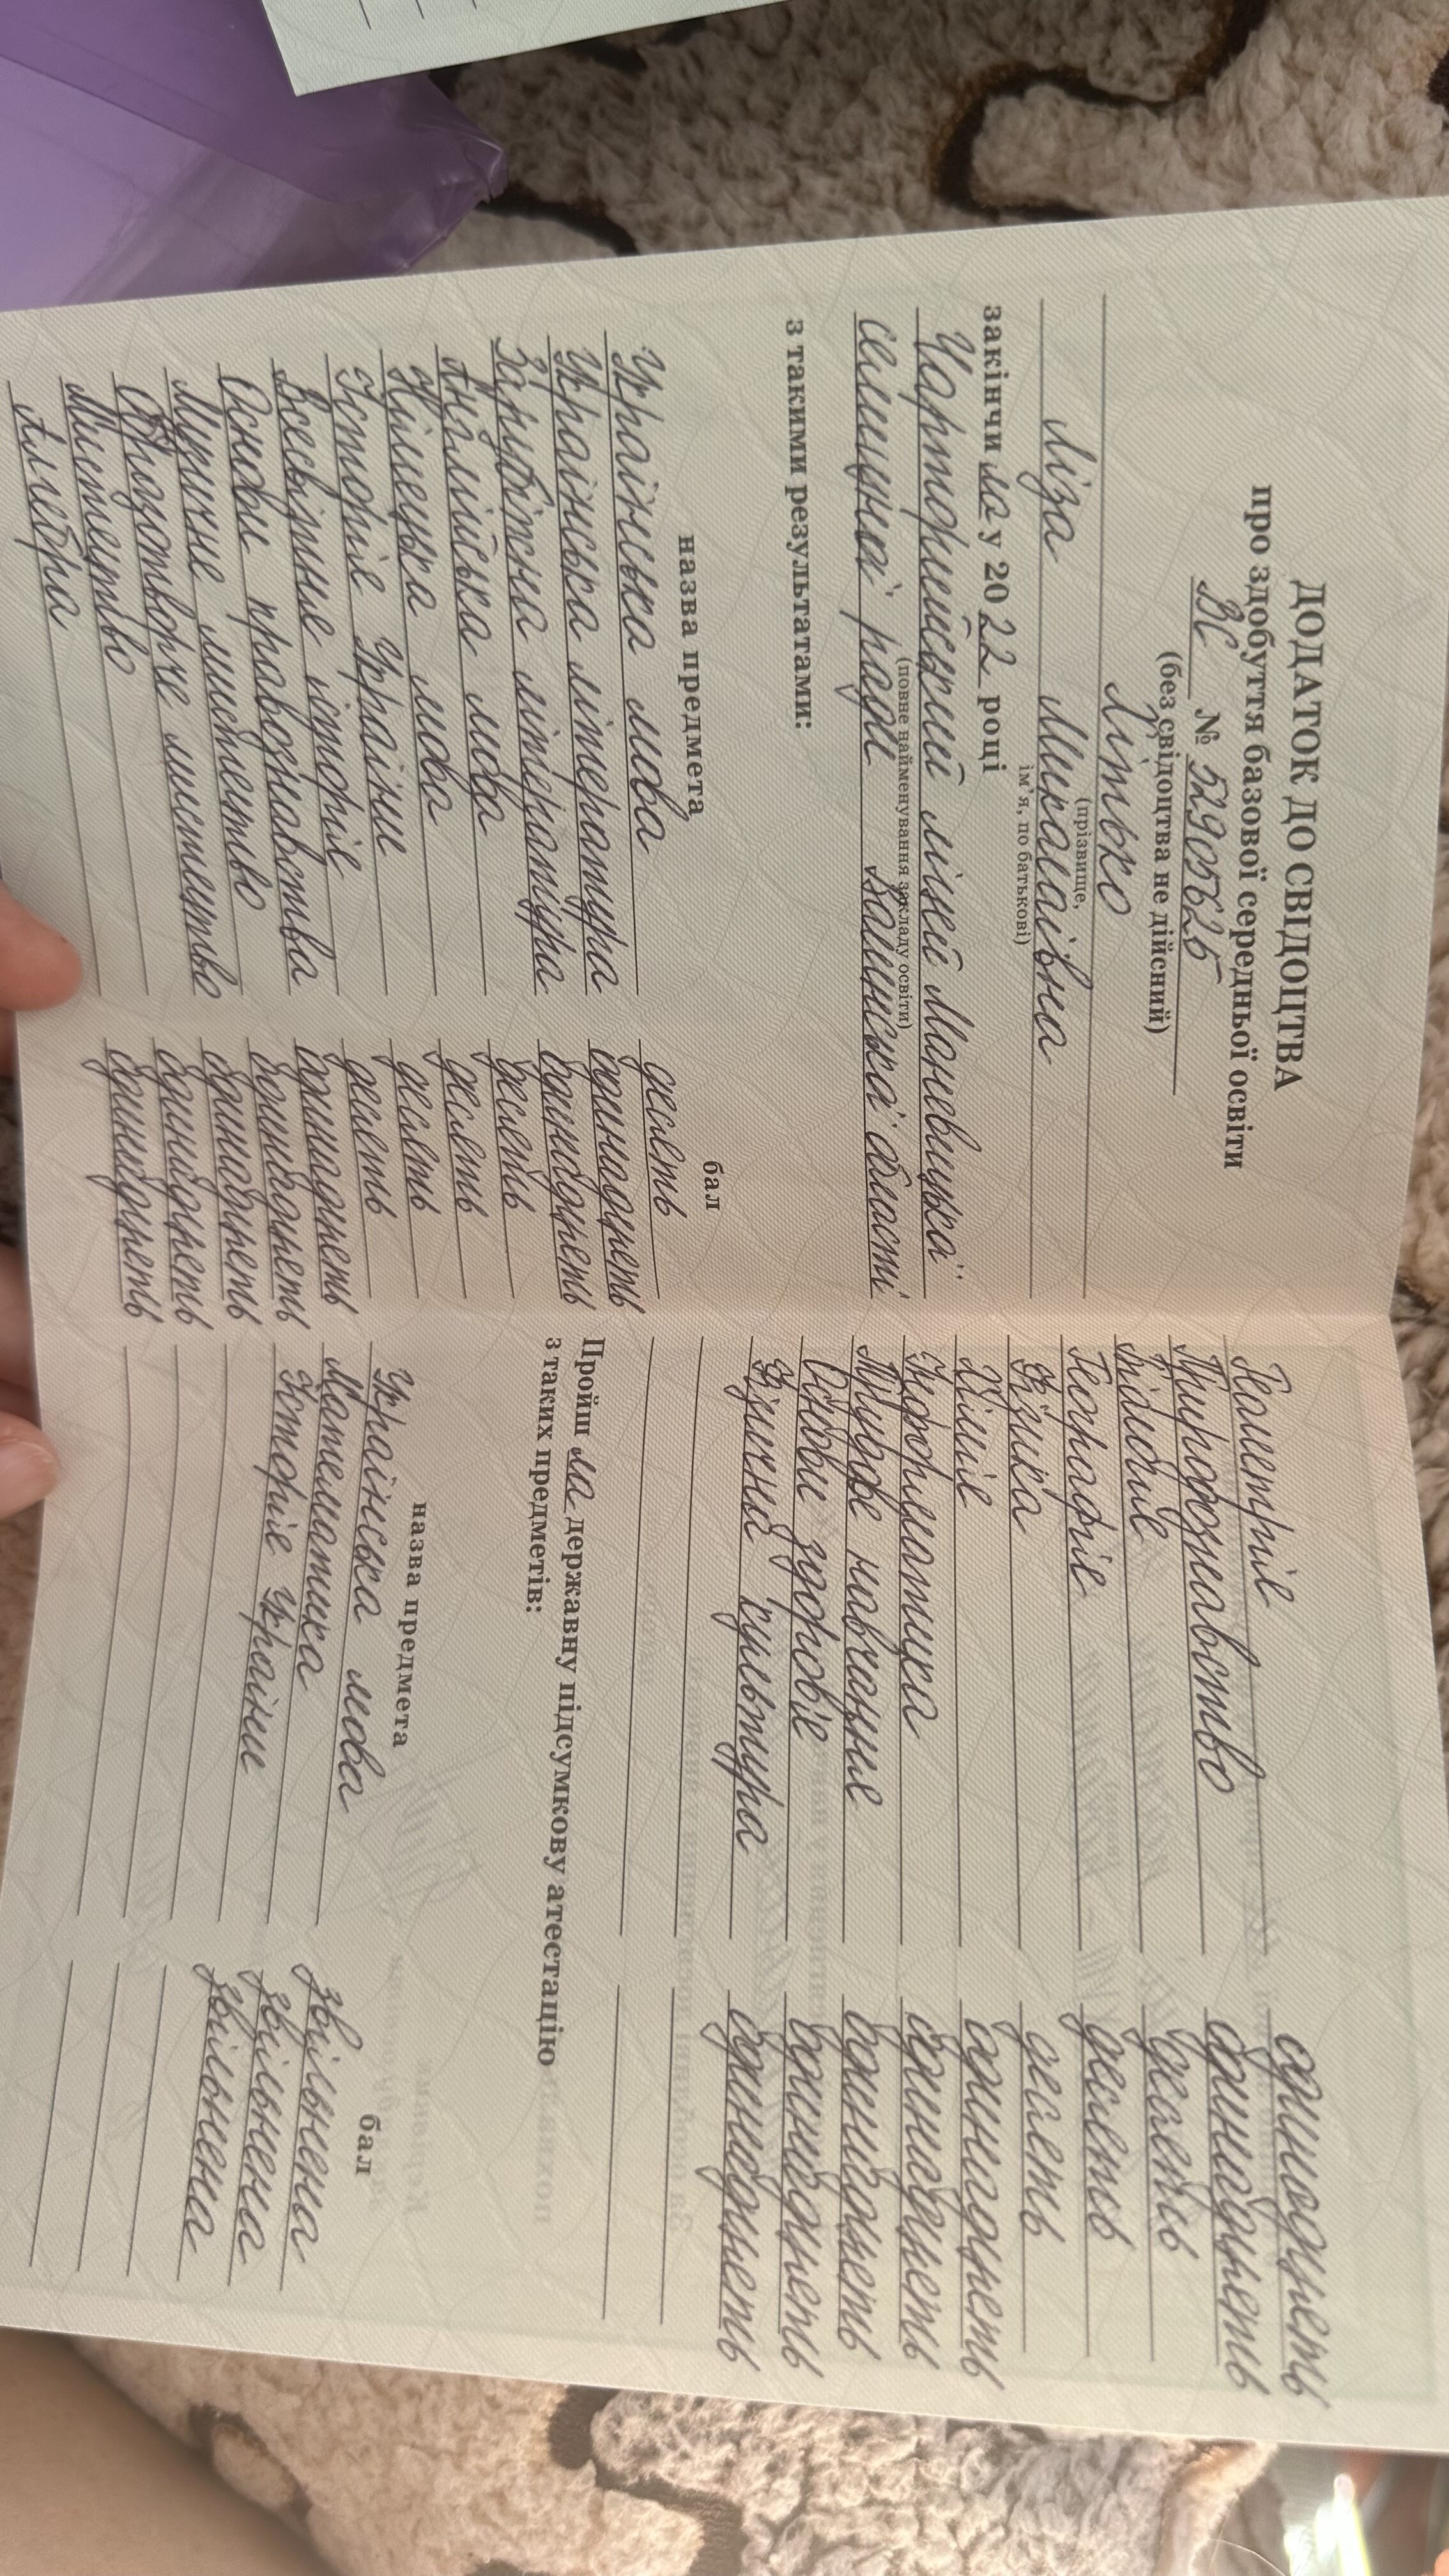 ДОДАТОК ДО СВІДОЦТВА
про здобуття базової середньої освіти
ВС № 52905625
(без свідоцтва не дійсний)
Литько
(прізвище,
Ліза Миколаївна
ім’я, по батькові)
закінчи ла у 20 22 році
Чарторийський ліцей Маневицької
(повне найменування закладу освіти)
селищної ради Волинської області
з такими результатами:
назва предмета бал
Українська мова десять
Українська література одинадцять
Зарубіжна література одинадцять
Англійська мова десять
Німецька мова десять
Історія України десять
Всесвітня історія десять
Основи правознавства одинадцять
Музичне мистецтво одинадцять
Образотворче мистецтво одинадцять
Мистецтво одинадцять
Алгебра одинадцять
Геометрія одинадцять
Природознавство одинадцять
Біологія десять
Географія десять
Фізика десять
Хімія одинадцять
Інформатика одинадцять
Трудове навчання одинадцять
Основи здоров'я одинадцять
Фізична культура одинадцять
Пройш ла державну підсумкову атестацію
з таких предметів:
назва предмета бал
Українська мова звільнена
Математика звільнена
Історія України звільнена